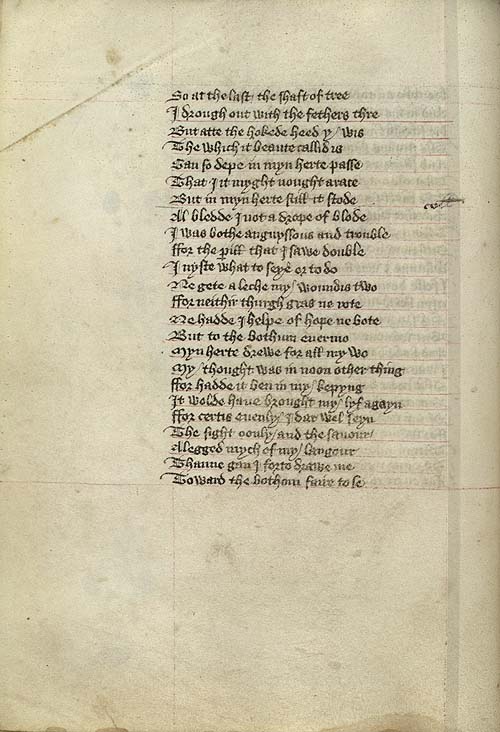 So at the last / the shaft of tree
I drough out with the fethers thre
But atte the hokede heed y / wis
The which it beaute callid is
Gan so depe in myn herte passe
That I it myght nought arace
But in myn herte still it stode
Al bledde I not a drope of blode
I was bothe anguyssous and trouble
ffor the perill that I sawe double
I nyste what to seye or to do
Ne gete a leche my / woundis two
ffor neithir thurgh gras ne rote
Ne hadde I helpe of hope ne bote
But to the bothum evermo
Myn herte drewe for all my wo
My / thought was in noon other thing
ffor hadde it ben in my / kepyng
It wolde have brought my / lyf agayn
ffor certis evenly / I dar wel seyn
The sight oonly / and the savour /
Alegged mych of my / langour
Thanne gan I forto drawe me
Toward the bothom faire to se